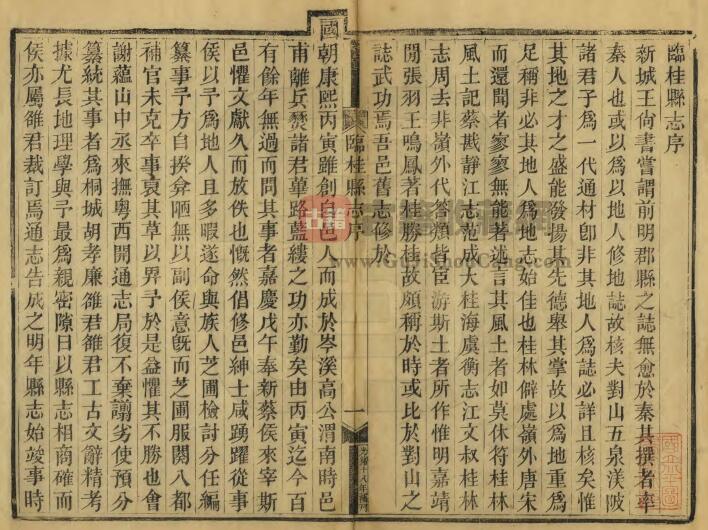 臨桂縣志序
新城王尚書嘗謂前明郡縣之誌無愈於秦其撰者率
秦人也或以以地人修地誌故核夫對山五泉渼陂
諸君子為一代通材卽非其地人為誌必詳且核矣惟
其地之才之盛能發揚其先德舉其掌故以為地重爲
足稱非必其地人為地志始佳也桂林僻處嶺外唐宋
而還聞者寥寥無能著述言其風土者如莫休符桂林
風土記蔡戡靜江志范成大桂海虞衡志江文叔桂林
志周去非嶺外代答類皆宦游斯土者所作惟明嘉靖
閒張羽王鳴鳳著桂勝桂故頗稱於時或比於對山之
誌武功焉吾邑舊志修於
國朝康熙丙寅雖創自邑人而成於岑溪高公渭南時邑
甫離兵燹諸君篳路藍縷之功亦勤矣由丙寅迄今百
有餘年無過而問其事者嘉慶戊午奉新蔡侯來宰斯
邑懼文獻久而放佚也慨然倡修邑紳士咸踴躍從事
侯以予為地人且多暇遂命與族人芝圃檢討分任編
纂事予方自揆弇陋無以副侯意旣而芝圃服闋入都
補官未克卒事裒其草以畀予於是益懼其不勝也會
謝蘊山中丞來撫粵西開通志局復不棄謭劣使預分
纂統其事者為桐城胡孝廉雒君雒君工古文辭精考
據尤長地理學與予最為親密隙日以縣志相商確而
侯亦屬雒君裁訂焉通志告成之明年縣志始竣事時
臨桂縣志序
一
光緒十八年補刊
古籍
www.GujiShouCang.com